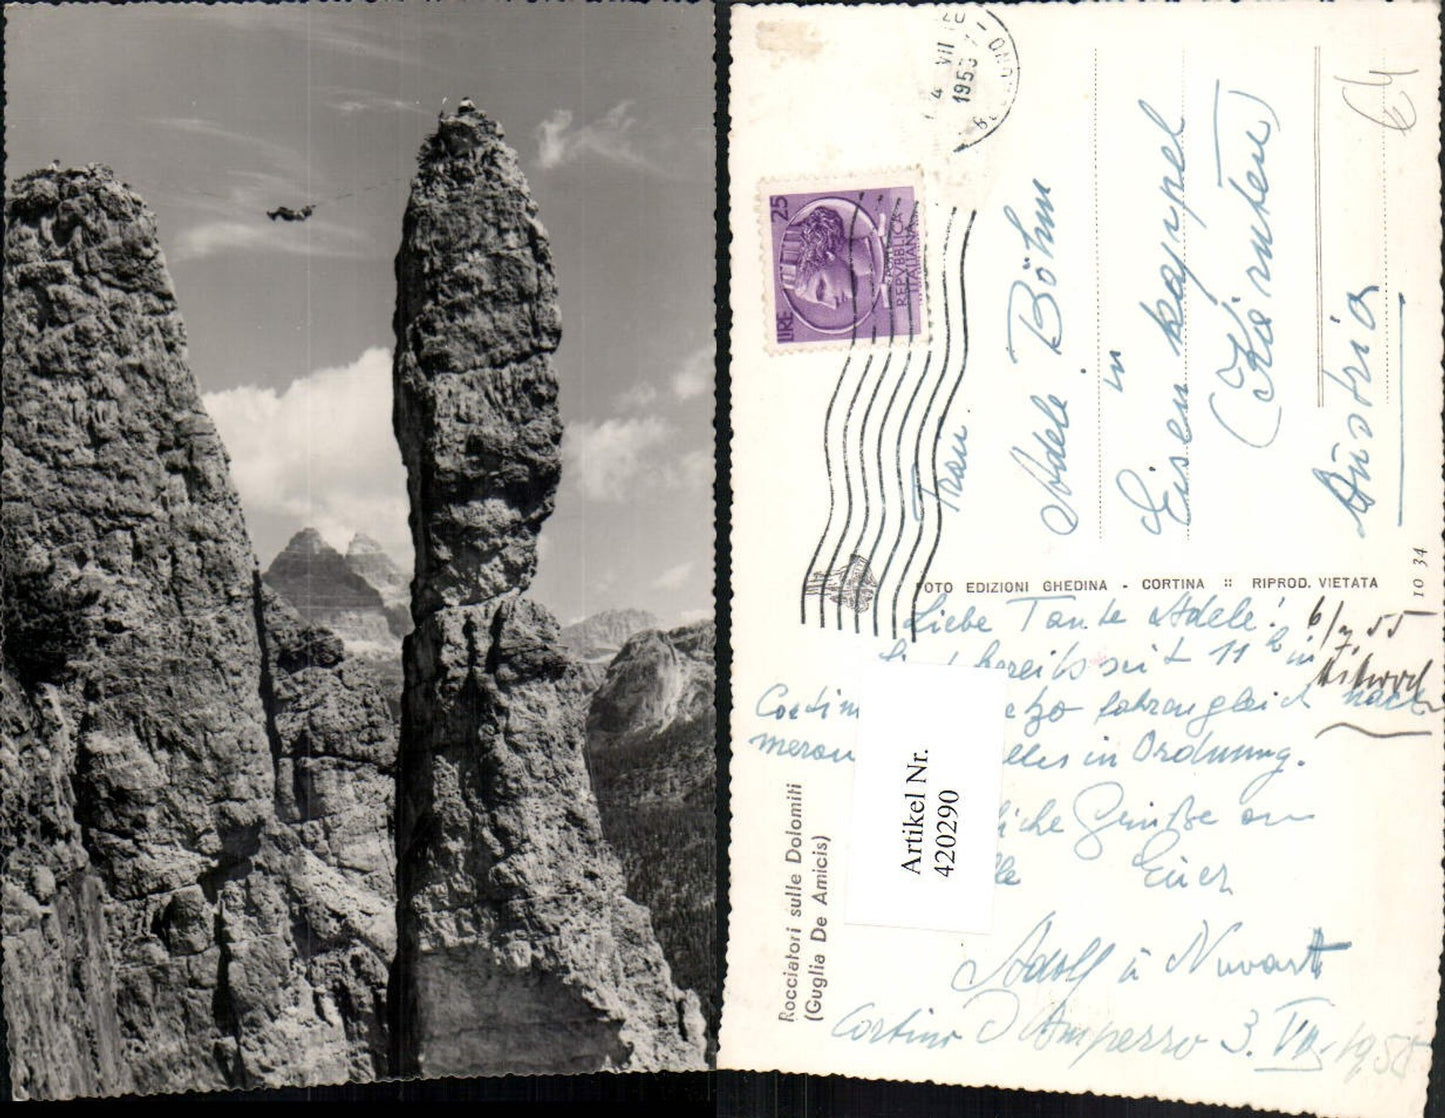 4 VII
1955
25
LIRE
REPVBBLICA
ITALIANA
Frau
Adele Böhm
in
Eisenkappel
(Kärnten)
Austria
FOTO EDIZIONI GHEDINA - CORTINA :: RIPROD. VIETATA
10 34
Liebe Tante Adele!
bereits seit 11 h in
fahren gleich nach
in Ordnung.
Grüße an
Euer
Adolf u
Cortina D'Ampezzo 3. VII. 1955
6/7. 55
Rocciatori sulle Dolomiti
(Guglia De Amicis)
Artikel Nr.
420290